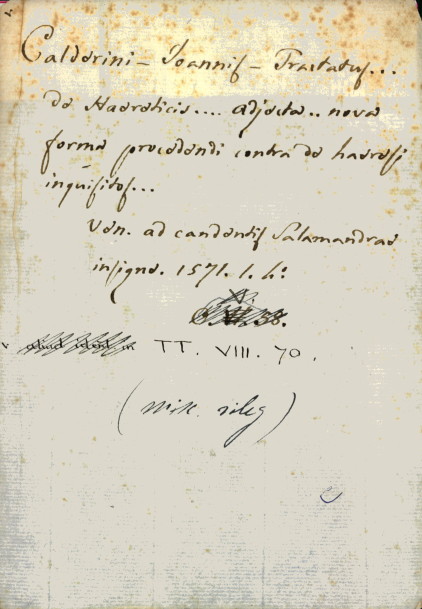 Calderini – Joannis – Tractatus...
de Haereticis.... adjecta.. nova
forma procedendi contra de haeresi
inquisitos...
Ven. ad candentis Salamandrae
insigne. 1571. 1. h:
38.
TT. VIII. 70.